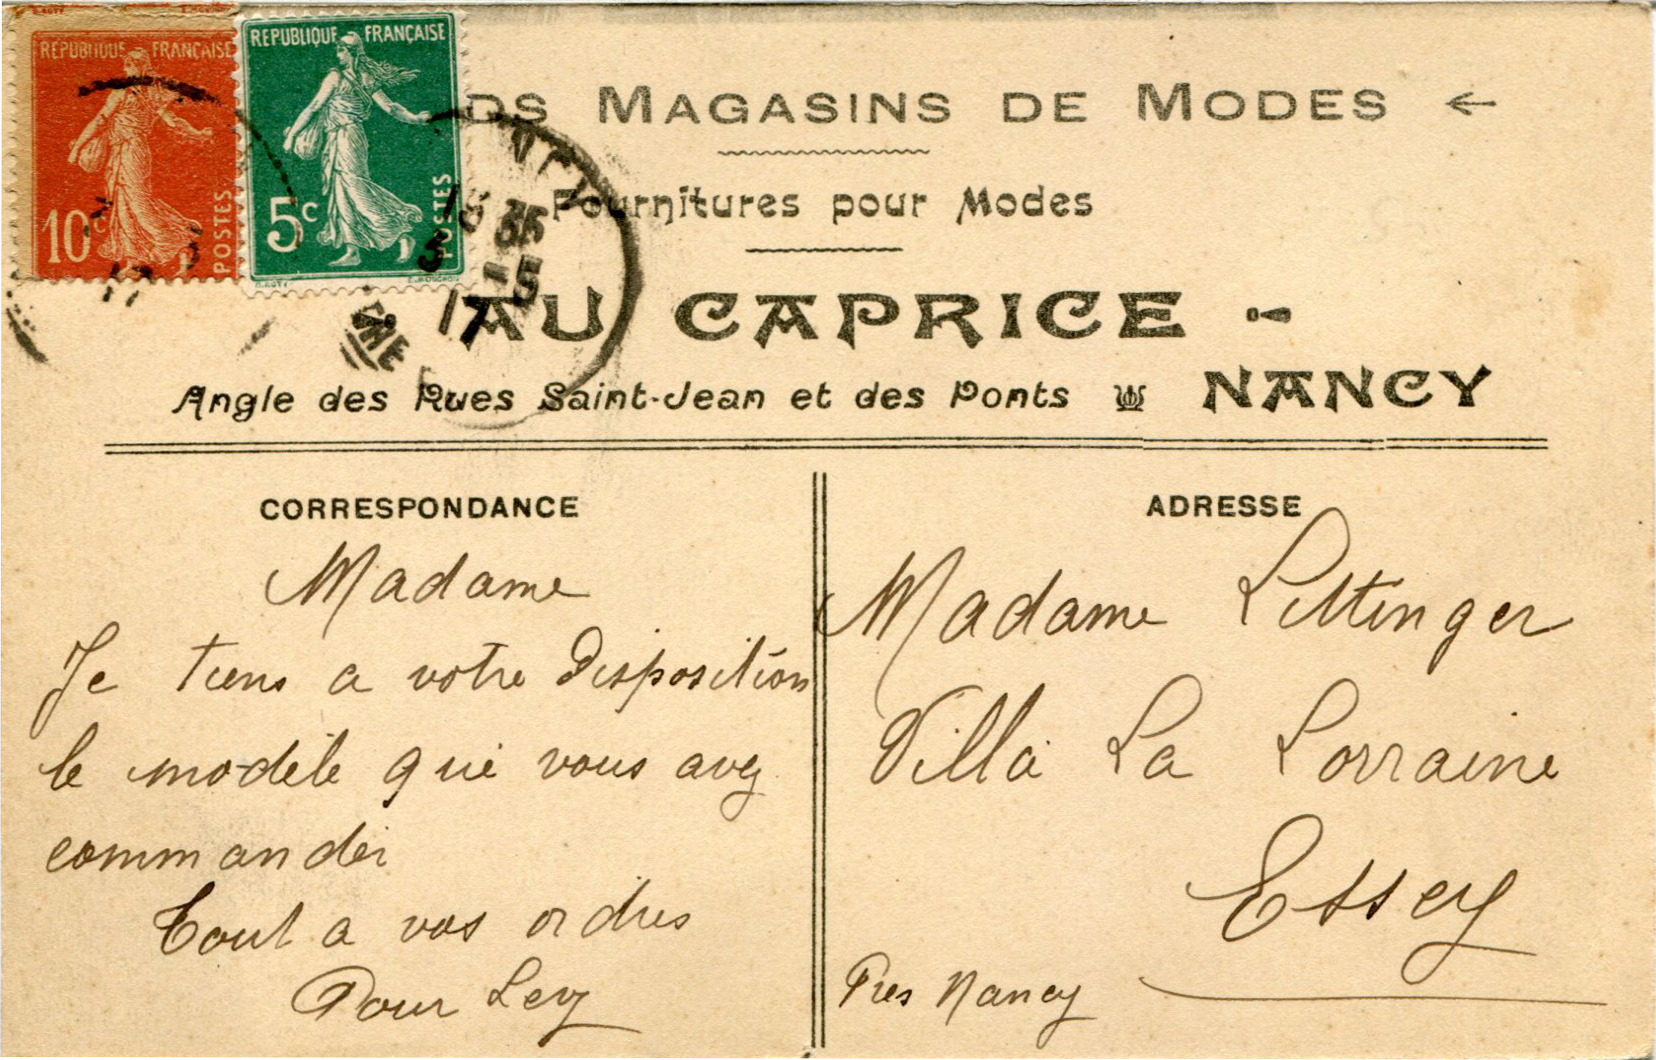 RÉPUBLIQUE FRANÇAISE
10c
POSTES
REPUBLIQUE FRANÇAISE
5c
POSTES
DS MAGASINS DE MODES
Fournitures pour Modes
AU CAPRICE
Angle des Rues Saint-Jean et des Ponts NANCY
CORRESPONDANCE
Madame
Je tiens a votre Disposition
le modèle que vous avez
commander
Tout a vos ordres
Pour Levy
ADRESSE
Madame Littinger
Villa La Lorraine
Essey
Près Nancy